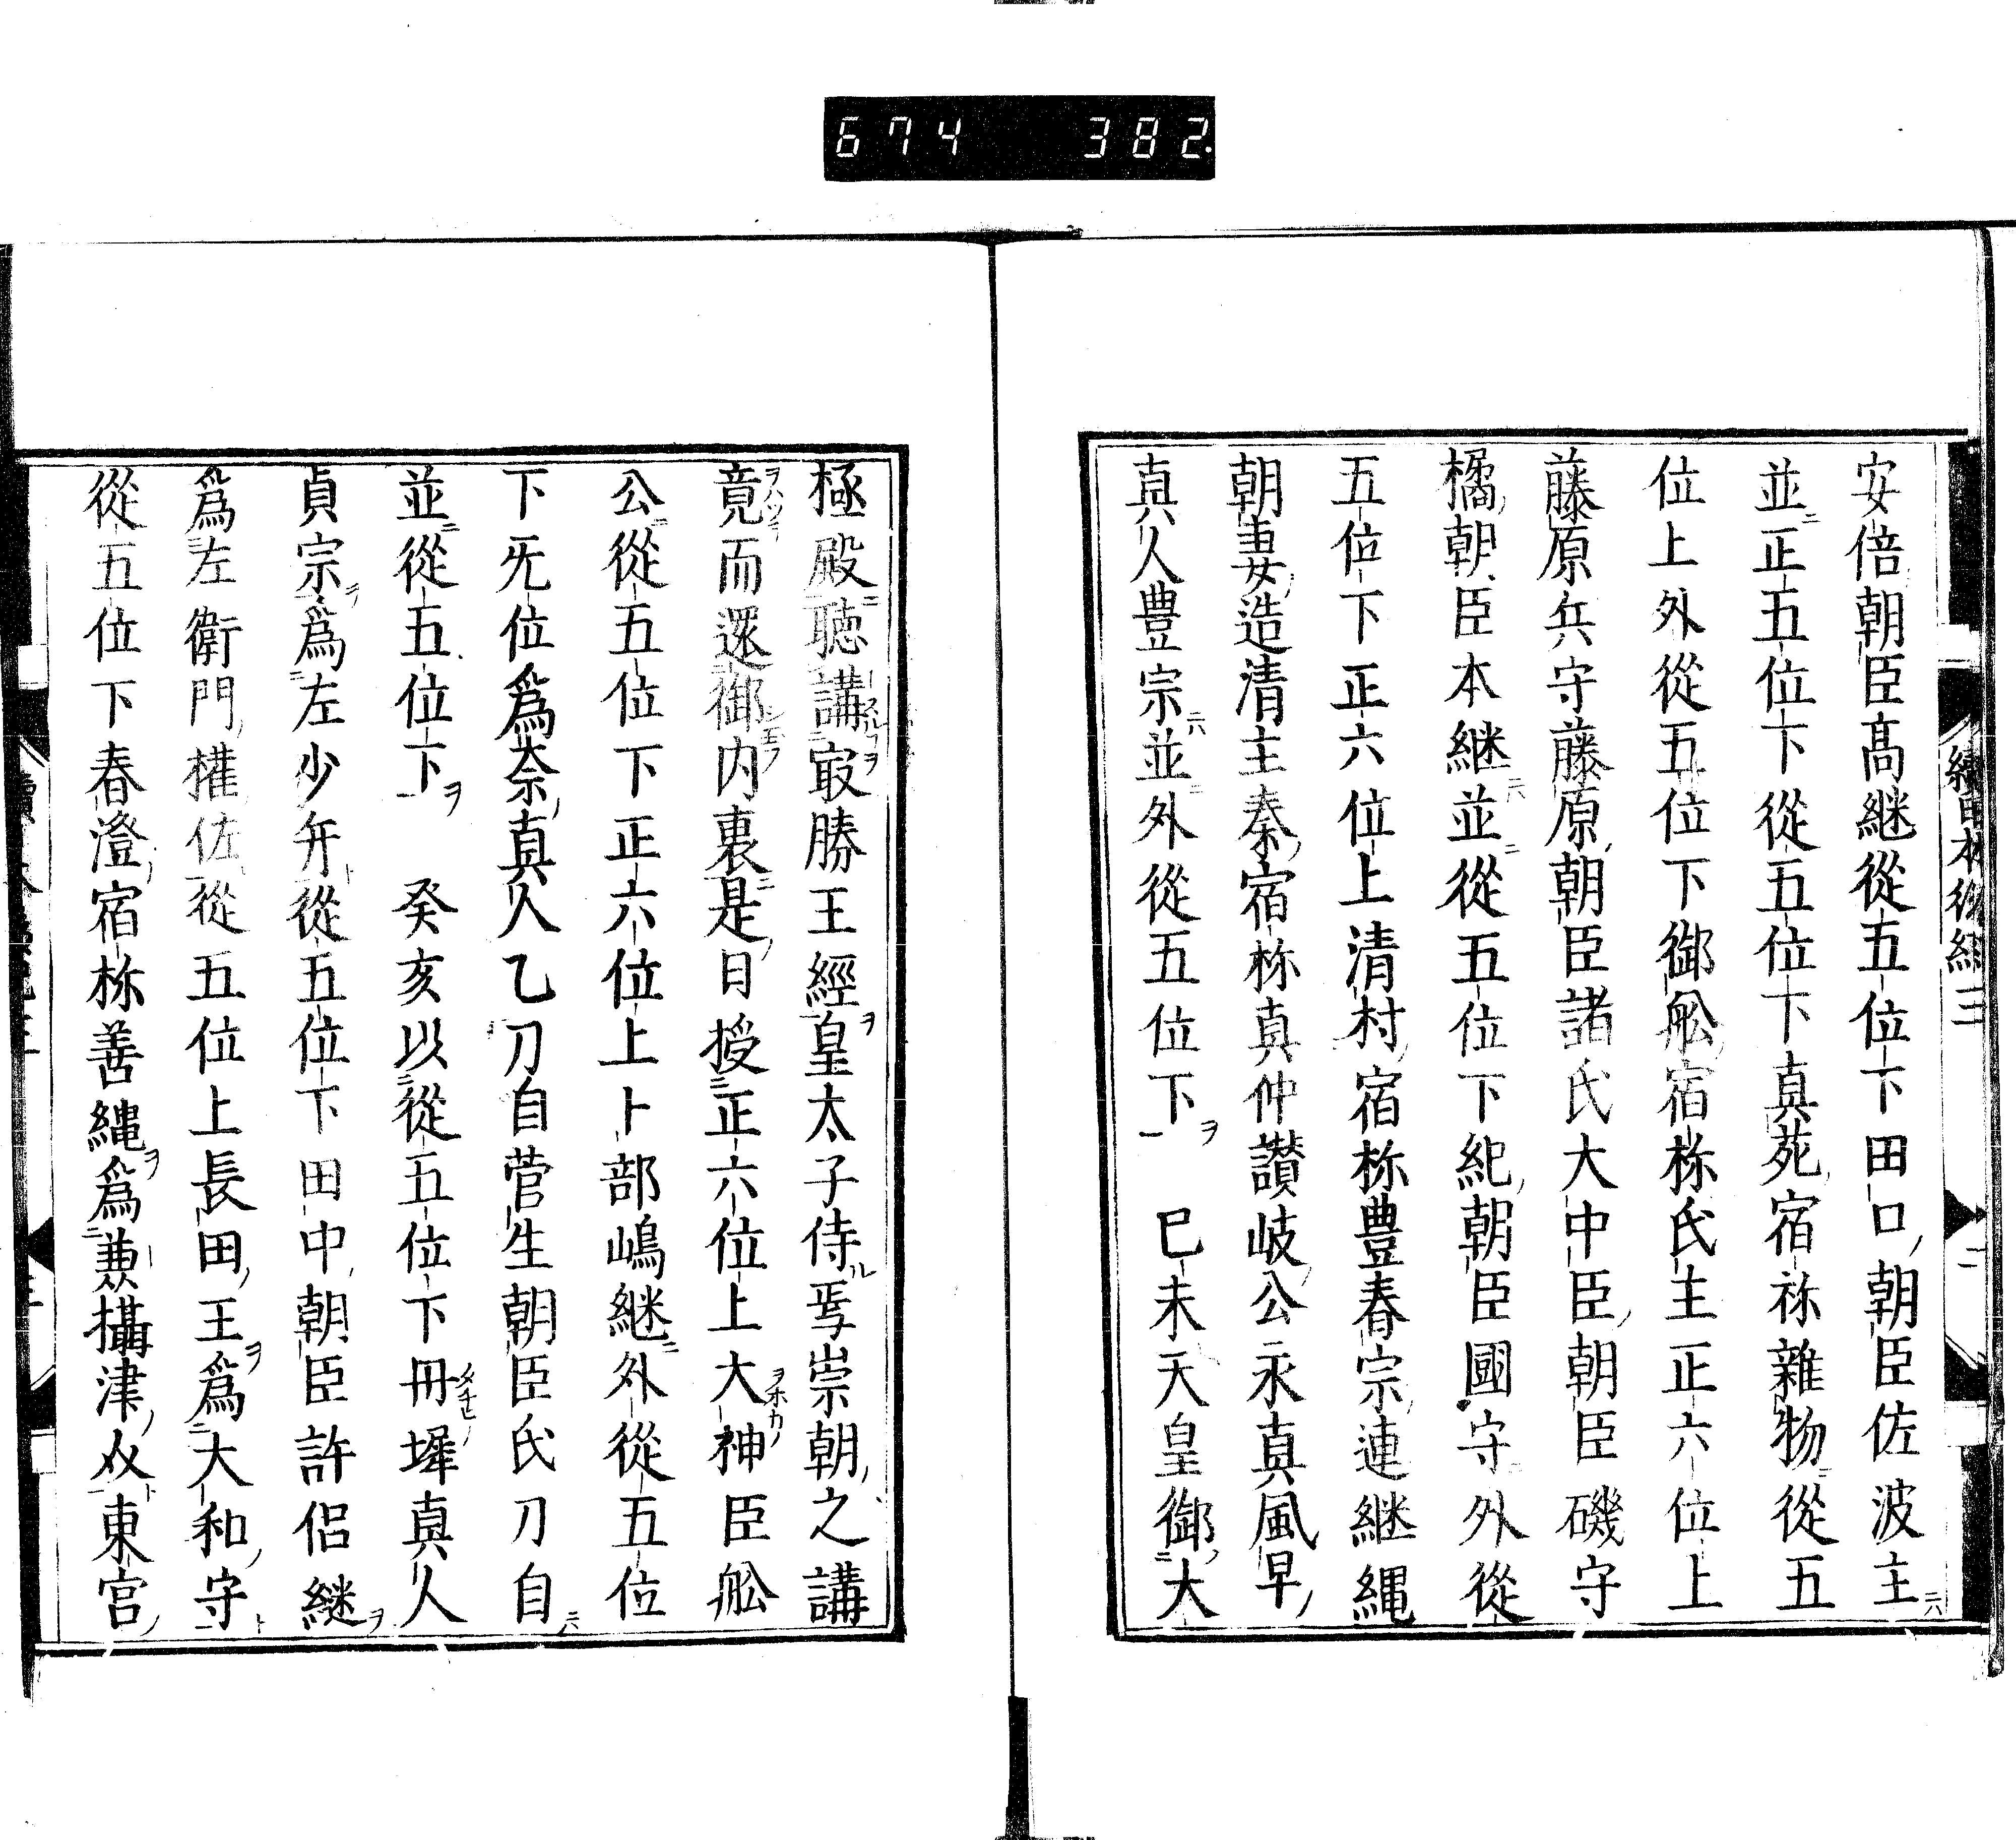 674 382
續日本後紀三 二
安倍朝臣髙継從五位下田口朝臣佐波主
並正五位下從五位下真苑宿祢雜物從五
位上外從五位下御舩宿祢氏主正六位上
藤原兵守藤原朝臣諸氏大中臣朝臣磯守
橘朝臣本継並從五位下紀朝臣國守外從
五位下正六位上清村宿祢豊春宗連継縄
朝妻造清主秦宿祢真仲讃岐公永真風早
真人豊宗並外從五位下 巳未天皇御大
極殿聴講㝡勝王經皇太子侍焉崇朝之講
竟而還御内裏是日授正六位上大神臣舩
公從五位下正六位上卜部嶋継外從五位
下无位爲奈真人乙刀自菅生朝臣氏刀自
並從五位下 癸亥以從五位下丹墀真人
貞宗爲左少弁從五位下田中朝臣許侶継
爲左衛門權佐從五位上長田王爲大和守
從五位下春澄宿祢善縄爲兼攝津大目東宮